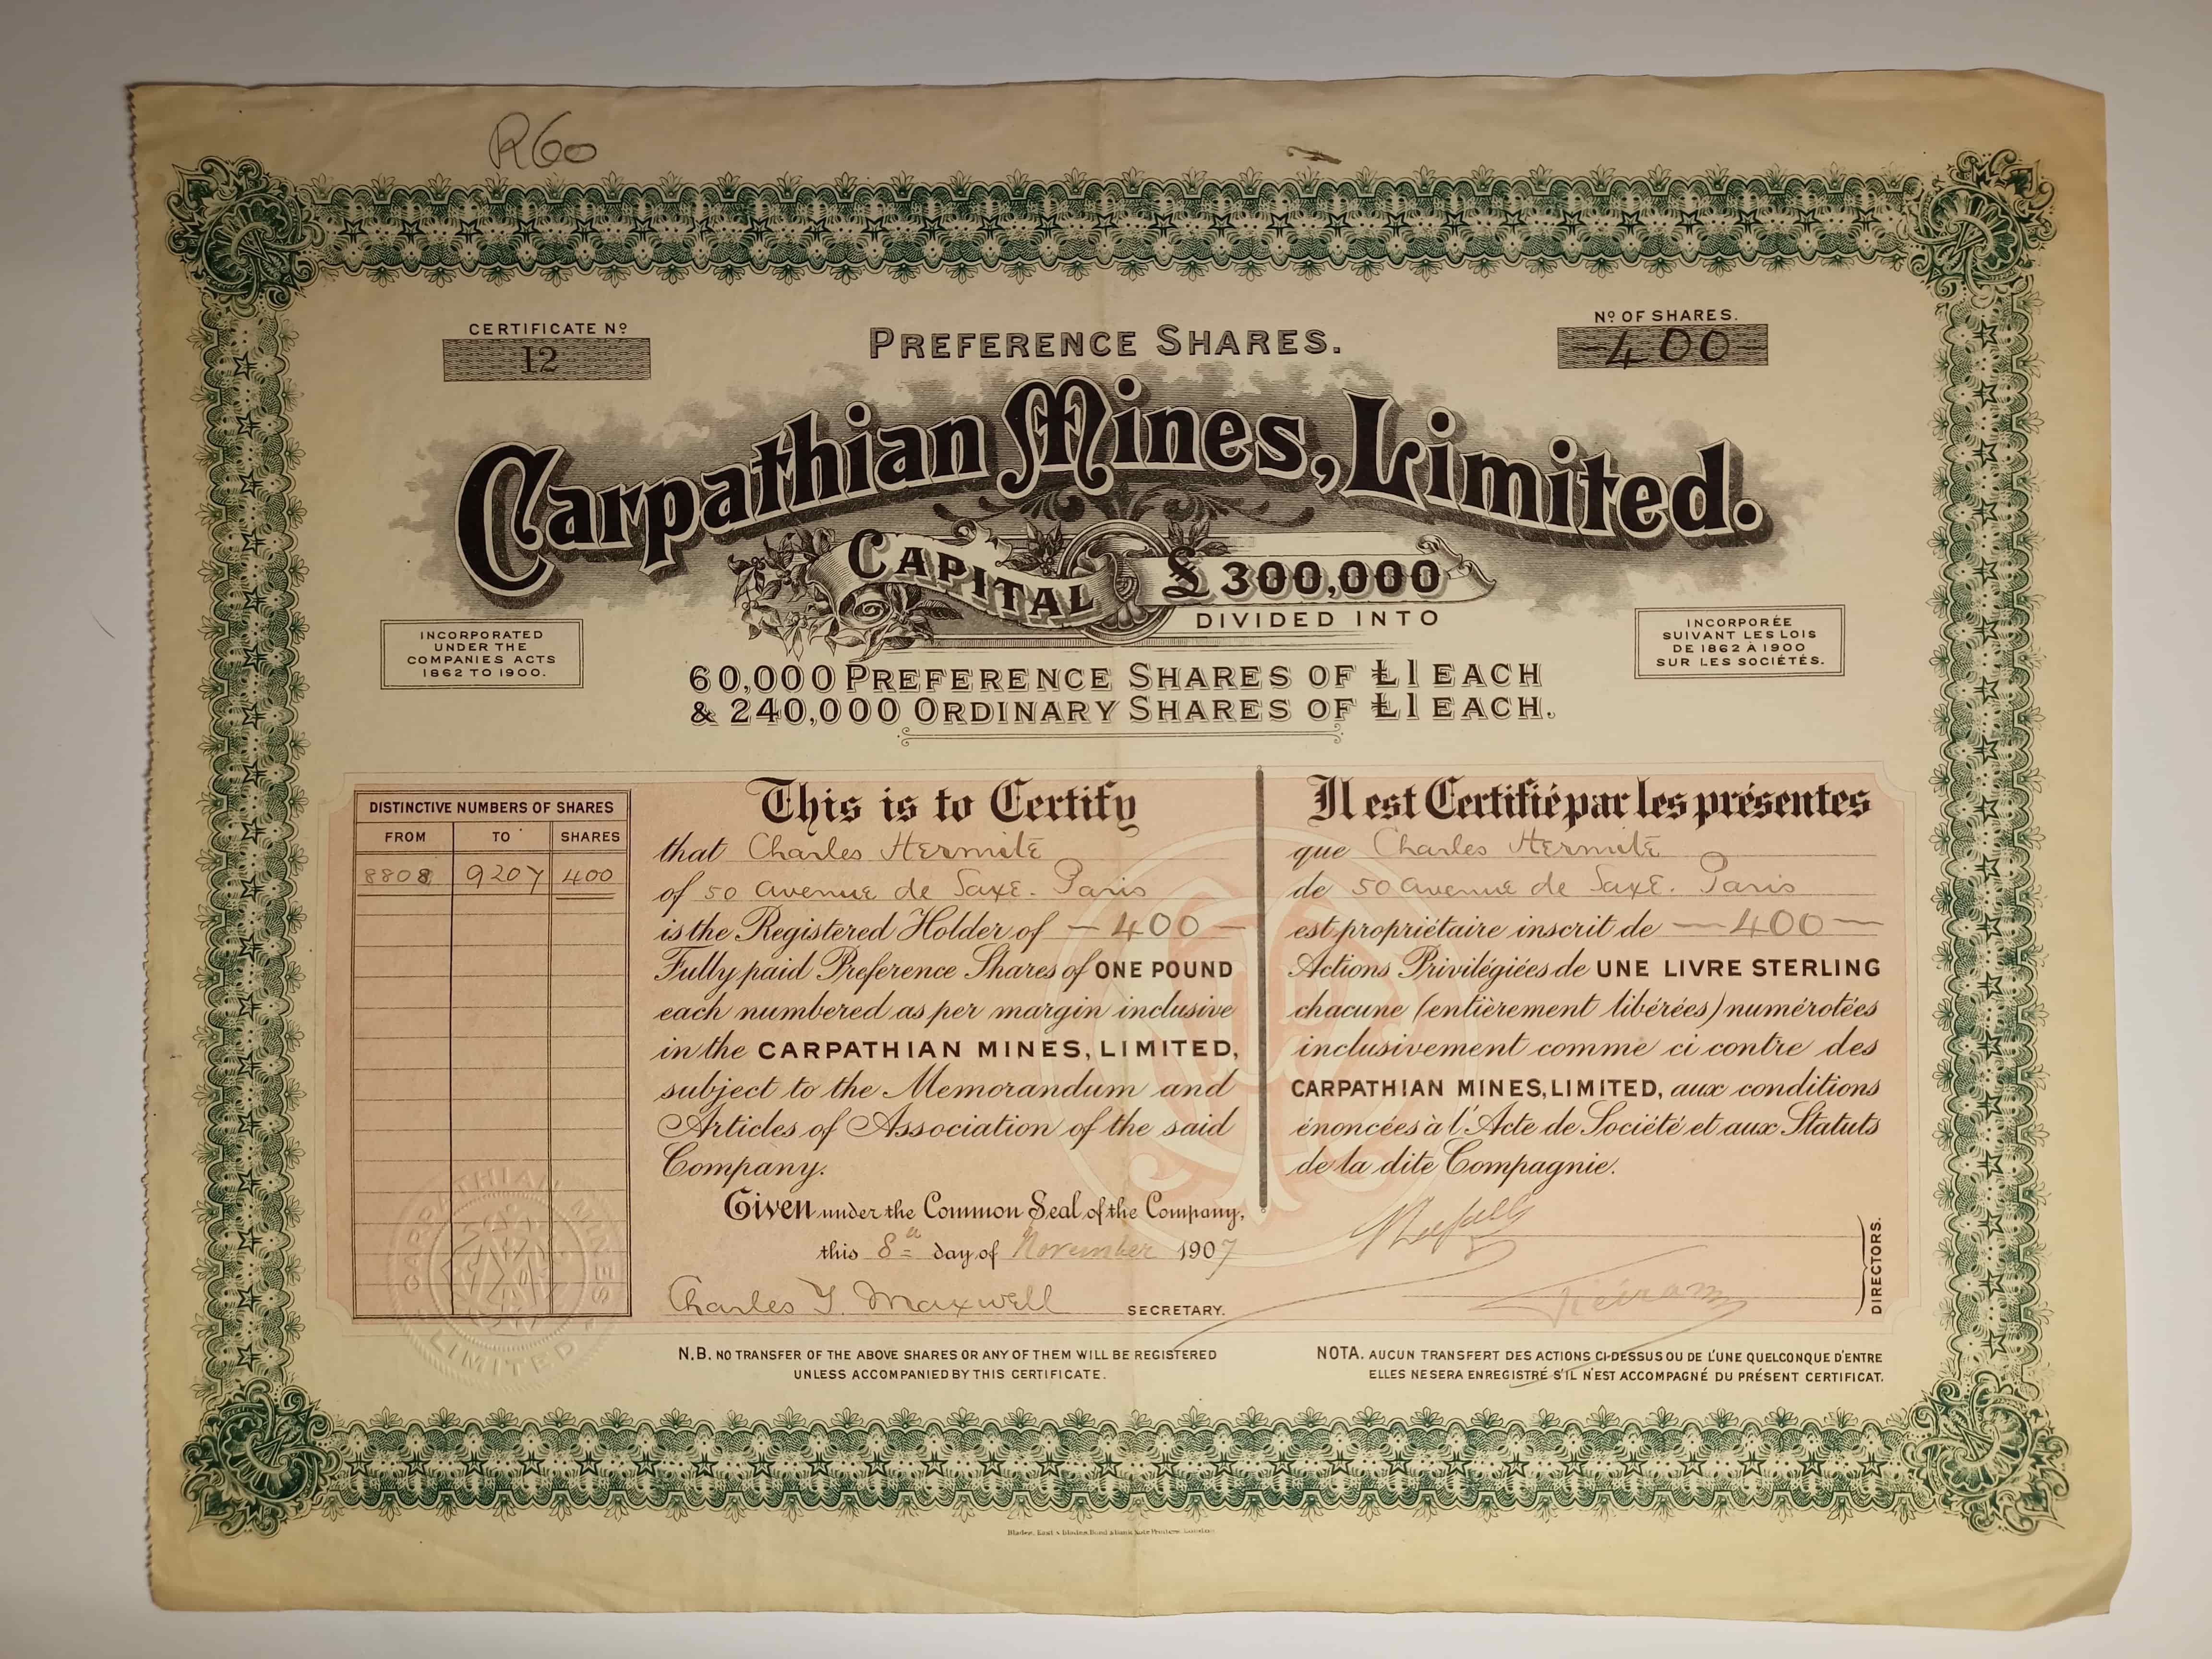 R60
CERTIFICATE Nº
12
PREFERENCE SHARES.
Nº OF SHARES.
-400-
Carpathian Mines, Limited.
CAPITAL £300,000
DIVIDED INTO
INCORPORATED
UNDER THE
COMPANIES ACTS
1862 TO 1900.
60,000 PREFERENCE SHARES OF £1 EACH
& 240,000 ORDINARY SHARES OF £1 EACH.
INCORPORÉE
SUIVANT LES LOIS
DE 1862 A 1900
SUR LES SOCIÉTÉS.
DISTINCTIVE NUMBERS OF SHARES
FROM TO SHARES
8808 9207 400
This is to Certify
that Charles Hermite
of 50 avenue de Saxe. Paris
is the Registered Holder of -400-
Fully paid Preference Shares of ONE POUND
each numbered as per margin inclusive
in the CARPATHIAN MINES, LIMITED,
subject to the Memorandum and
Articles of Association of the said
Company.
Given under the Common Seal of the Company,
this 8th day of November 1907
Charles Y. Maxwell SECRETARY.
Il est Certifié par les présentes
que Charles Hermite
de 50 avenue de Saxe. Paris
est propriétaire inscrit de -400-
Actions Privilégiées de UNE LIVRE STERLING
chacune (entièrement libérées) numérotées
inclusivement comme ci contre des
CARPATHIAN MINES, LIMITED, aux conditions
énoncées à l'Acte de Société et aux Statuts
de la dite Compagnie.
DIRECTORS.
CARPATHIAN MINES
LIMITED
N.B. NO TRANSFER OF THE ABOVE SHARES OR ANY OF THEM WILL BE REGISTERED
UNLESS ACCOMPANIED BY THIS CERTIFICATE.
NOTA. AUCUN TRANSFERT DES ACTIONS CI-DESSUS OU DE L'UNE QUELCONQUE D'ENTRE
ELLES NE SERA ENREGISTRÉ S'IL N'EST ACCOMPAGNÉ DU PRÉSENT CERTIFICAT.
Blades, East & Blades, Bond & Bank Note Printers, London